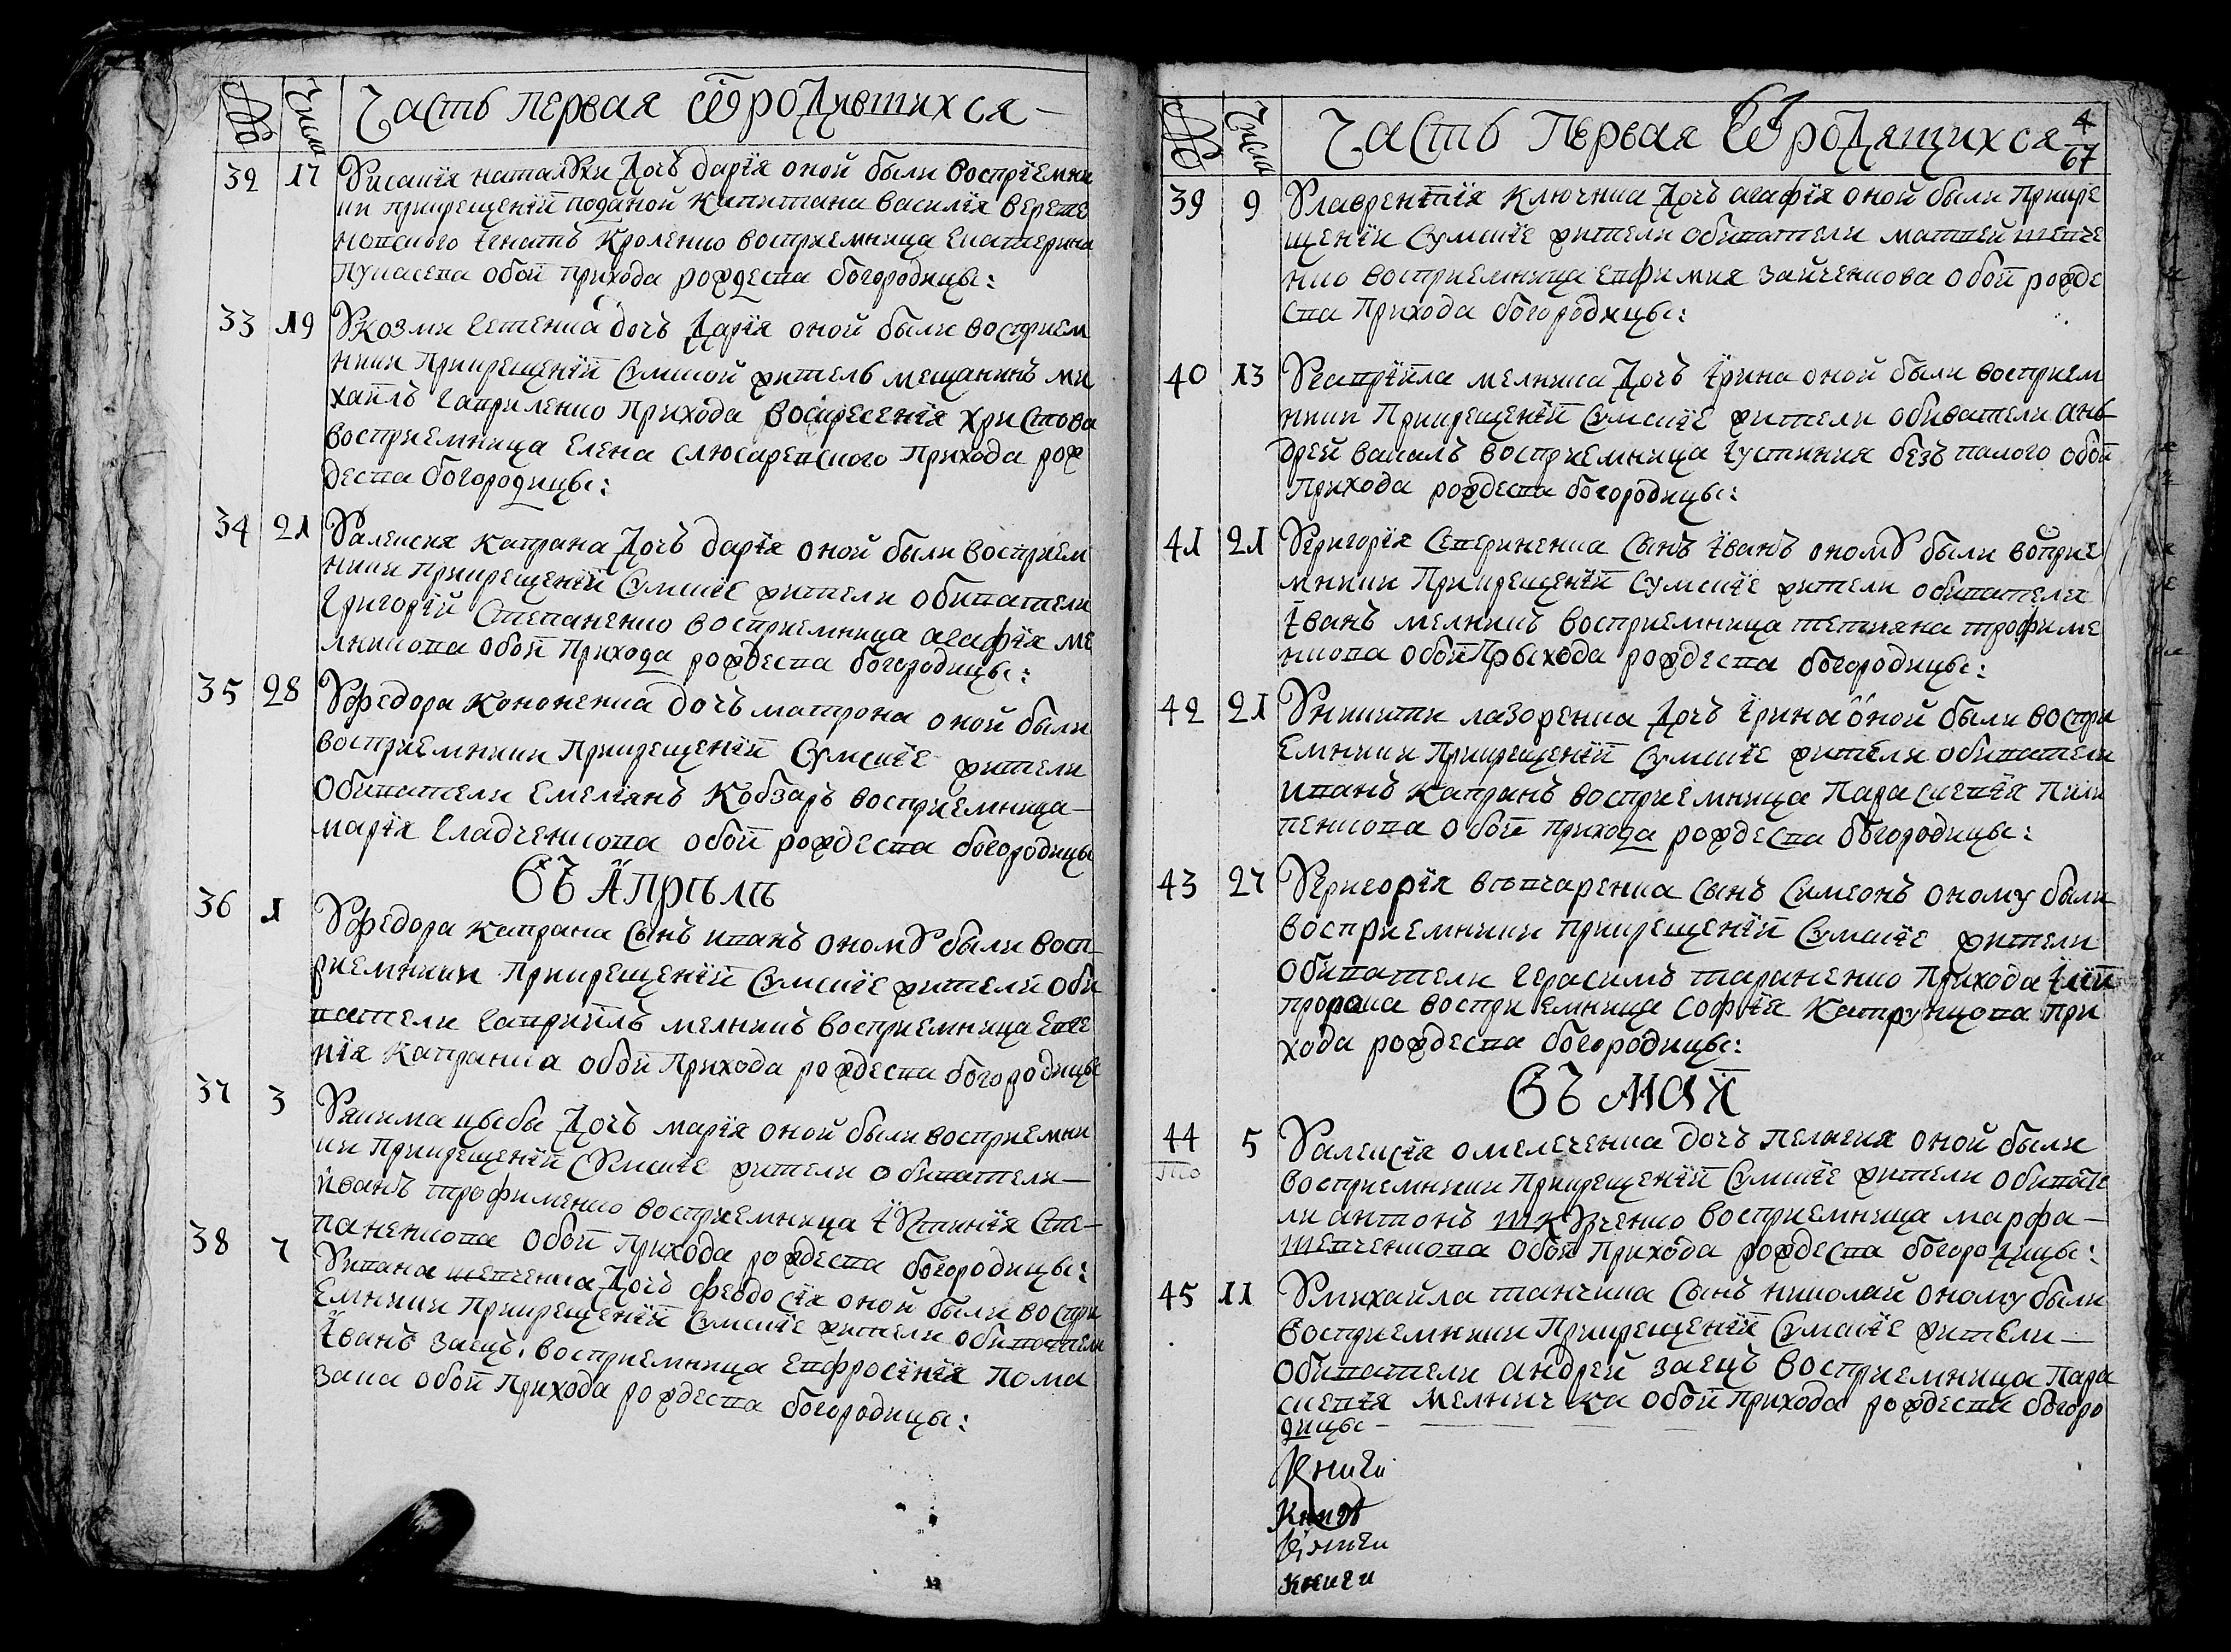 № Числа Часть первая ѡ родившихся
32 17 Уисакїя наталухи дочъ дарїя оной были воспрїемни
ки прикрещенїй поданой капитана василїя верете
нопского їгнатъ Кроленко восприемница Екатерина
Лукасева обой прихода рождества богородицы:
33 19 Укозми гетенка дочъ дарїя оной были восприем
ники Прикрещенїй Сумской житель мещанинъ ми
хаилъ гавриленко Прихода воскресенїя Христова
восприемница Елена слюсаревского Прихода рож
дества богородицы:
34 21 Уалексия каврана дочъ дарїя оной были восприем
ники прикрещенїй Сумскїе жители обиватели
Григорїй Степаненко восприемница агафїя ме
лникова обой Прихода рождества богородицы:
35 28 Уфедора Кононенка дочъ матрона оной были
восприемники Прикрещенїй Сумскїе жители
Обиватели Емелїянъ Кобзаръ восприемница
марїя Гладченкова обой рождества богородицы
Въ Априлѣ
36 1 Уфедора каврана Сынъ иванъ оному были восп
риемники Прикрещенїй Сумскїе жители оби
ватели гавриилъ мелникъ восприемница Евге
нїя Капранка обой Прихода рождества богородицы
37 3 Уякима цыбы Дочъ марїя оной были восприемни
ки Прикрещенїй Сумскїе жители обиватели
иванъ трофименко восприемница їустинїя Сте
паненкова обой Прихода рождества богородицы:
38 7 Уивана шевченка Дочъ феодосїя оной были воспри
Емники Прикрещенїй Сумскїе жители обиватели
їванъ заецъ. восприемница Евфросїнїя Лома
зака обой Прихода рождества богородицы:
№ Числа Часть Първая ѡ родящихся 4 67
39 9 Улаврентїя Ключника Дочъ агафїя оной были Прикре
щенїи Сумскїе жители обиватели матвей шевче
нко восприемница Евфимия зайченкова обой рожде
ства Прихода богородицы:
40 13 Угаврїила мелника Дочъ їрина оной были восприем
ники Прикрещенїй Сумскїе жители обиватели анъ
дрей вакалъ восприемница їустиния безъпалого обой
прихода рождества богородицы:
41 21 Угригорїя Севериненка Сынъ їванъ оному были воприе
мники Прикрещенїй Сумскїе жители обиватели
їванъ мелникъ восприемница тетияна трофиме
нкова обой Прыхода рождества богородицы:
42 21 Уникити лазоренка Дочъ їрина оной были воспри
емники Прикрещенїй Сумскїе жители обиватели
иванъ капранъ восприемница Параскевїя Пили
пенкова обой прихода рождества богородицы:
43 27 Угригорїя вѣвчаренка Сынъ Симеонъ оному были
восприемники прикрещенїй Сумскїе жители
обиватели герасимъ тараненко Прихода їлїи
пророка восприемница Софїя Капрунцова при
хода рождества богородицы:
Въ маїи
44 5 Уалексїя омелеченка дочъ пелагия оной были
восприемники Прикрещенїй Сумскїе жители обивате
ли антонъ шкурченко восприемница марфа
шевченкова обой Прихода рождества богородицы:
45 11 Умихайла танчика Сынъ николай оному были
восприемники Прикрещенїй Сумскїе жители
обиватели андрей заецъ восприемница Пара
скевїя мелничка обой Прихода рождества богоро
дицы
Книги
Книги
Книги
книги